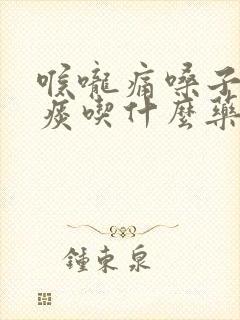 喉嚨痛嗓子
痰喫什麼藥
鍾東泉